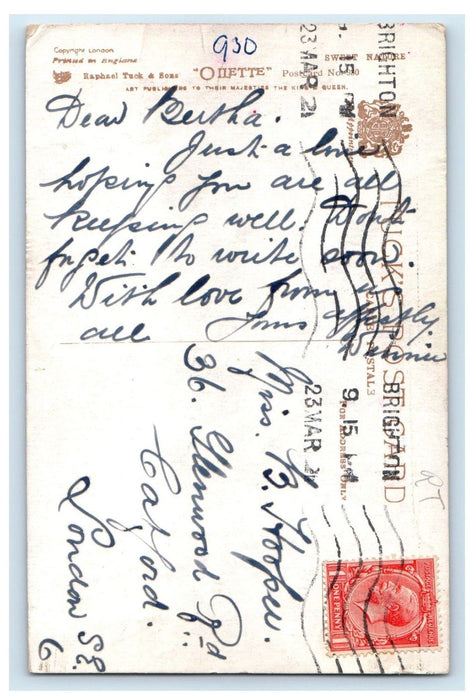 930
Copyright London.
Printed in England
SWEET NATURE
Raphael Tuck & Sons "OILETTE" Postcard No. 930
ART PUBLISHERS TO THEIR MAJESTIES THE KING & QUEEN.
Dear Bertha.
Just a line
hoping you are all
keeping well. Don't
forget to write soon.
With love from us
all Yours affectly
Winnie
Miss. B. Hooper.
36. Glenwood Rd
Catford.
London S.E.
6
TUCK'S POST CARD
CARTE POSTALE
FOR ADDRESS ONLY
BRIGHTON
9. 15 PM
23 MAR 21
BRIGHTON
9. 15 PM
23 MAR 21
RT
ONE PENNY